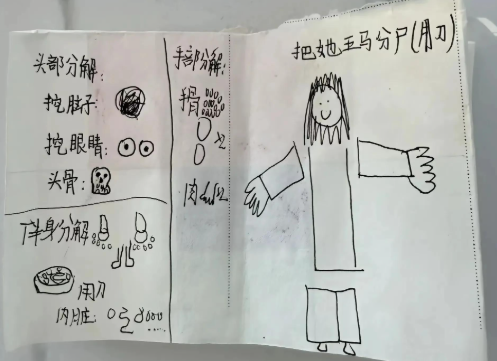 把她五马分尸(用刀)
头部分解:
挖脑子:
挖眼睛:
头骨:
手部分解:
手骨
x2
肉
x2
下半身分解
用刀
内脏: